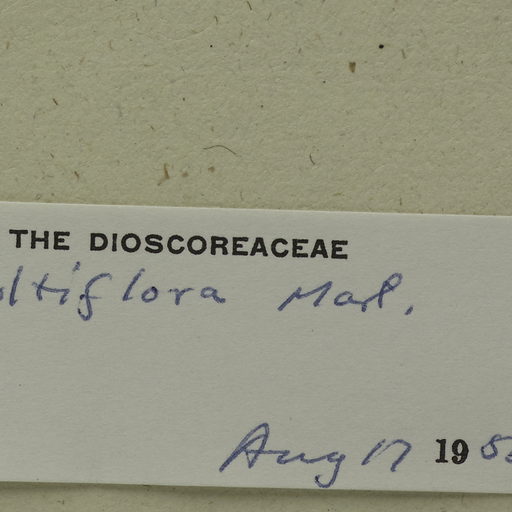 THE DIOSCOREACEAE
ltiflora Mart.
Aug 17 19